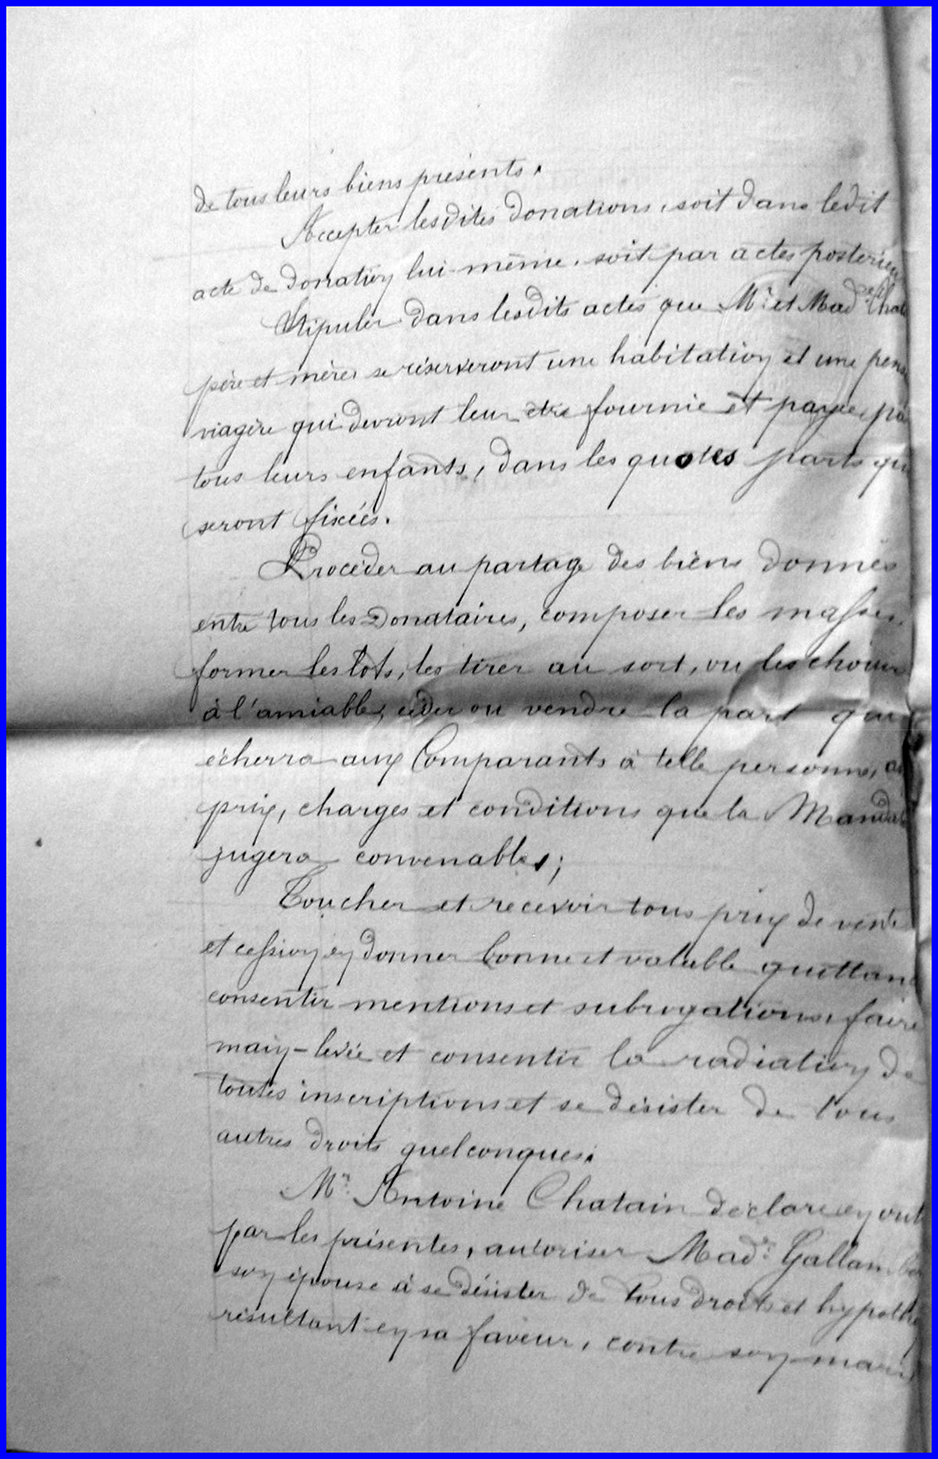 de tous leurs biens présents.
Accepter lesdites donations, soit dans ledit
acte de donation lui même, soit par actes posterieu
Stipuler dans lesdits actes que Mr et Made Chat
père et mère se réserveront une habitation et une pens
viagère qui devront leur être fournie et payée pa
tous leurs enfants, dans les quotes parts qui
seront fixées.
Procéder au partage des biens donnés
entre tous les Donataires, composer les masses,
former les lots, les tirer au sort, ou les choisir
à l'amiable, céder ou vendre la part qui
écherra aux Comparants à telle personne, au
prix, charges et conditions que la Mandat
jugera convenables;
Toucher et recevoir tous prix de vente
et cession en donner bonne et valable quittanc
consentir mentions et subrogations, faire
main-levée et consentir la radiation de
toutes inscriptions et se désister de tous
autres droits quelconques.
Mr Antoine Chatain déclare en outr
par les présentes, autoriser Made
son épouse à se désister de tous droits et hypothè
résultant en sa faveur, contre son mari